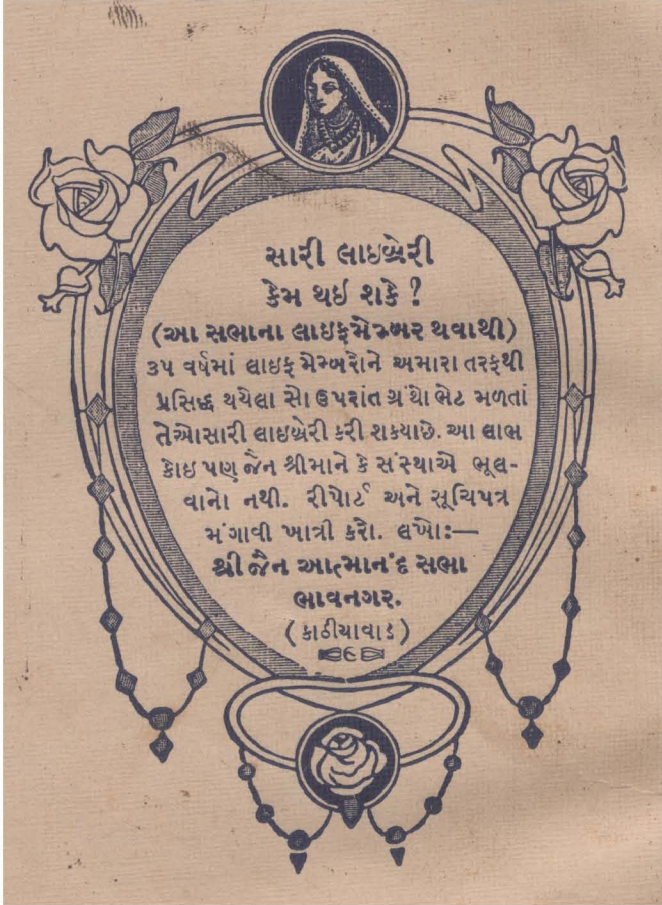 સારી લાઇબ્રેરી
કેમ થઇ શકે ?
(આ સભાના લાઇફમેમ્બર થવાથી)
૩૫ વર્ષમાં લાઇફ મેમ્બરોને અમારા તરફથી
પ્રસિદ્ધ થયેલા સો ઉપરાંત ગ્રંથો ભેટ મળતાં
તેઓસારી લાઇબ્રેરી કરી શકયાછે. આ લાભ
કોઇ પણ જૈન શ્રીમાને કે સંસ્થાએ ભૂલ-
વાનો નથી. રીપોર્ટ અને સૂચિપત્ર
મંગાવી ખાત્રી કરો. લખો:—
શ્રી જૈન આત્માનંદ સભા
ભાવનગર.
(કાઠીયાવાડ)